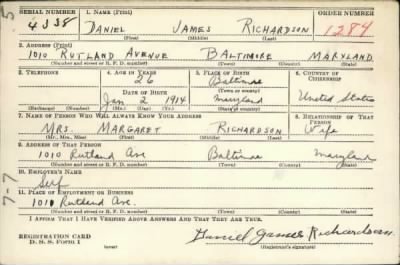 SERIAL NUMBER 1. NAME (Print) ORDER NUMBER
4338 DANIEL JAMES RICHARDSON 1284
(First) (Middle) (Last)
2. ADDRESS (Print)
1010 RUTLAND AVENUE BALTIMORE MARYLAND
(Number and street or R. F. D. number) (Town) (County) (State)
3. TELEPHONE 4. AGE IN YEARS 5. PLACE OF BIRTH 6. COUNTRY OF CITIZENSHIP
26 Baltimore
(Town or county)
DATE OF BIRTH
Jan 2 1914 Maryland United States
(Exchange) (Number) (Mo.) (Day) (Yr.) (State or country)
7. NAME OF PERSON WHO WILL ALWAYS KNOW YOUR ADDRESS 8. RELATIONSHIP OF THAT PERSON
MRS. MARGARET RICHARDSON Wife
(Mr., Mrs., Miss) (First) (Middle) (Last)
9. ADDRESS OF THAT PERSON
1010 Rutland Ave Baltimore Maryland
(Number and street or R. F. D. number) (Town) (County) (State)
10. EMPLOYER'S NAME
Self
11. PLACE OF EMPLOYMENT OR BUSINESS
1010 Rutland Ave.
(Number and street or R. F. D. number) (Town) (County) (State)
I AFFIRM THAT I HAVE VERIFIED ABOVE ANSWERS AND THAT THEY ARE TRUE.
REGISTRATION CARD
D. S. S. FORM 1 (over) Daniel James Richardson
(Registrant's signature)
5
7-7